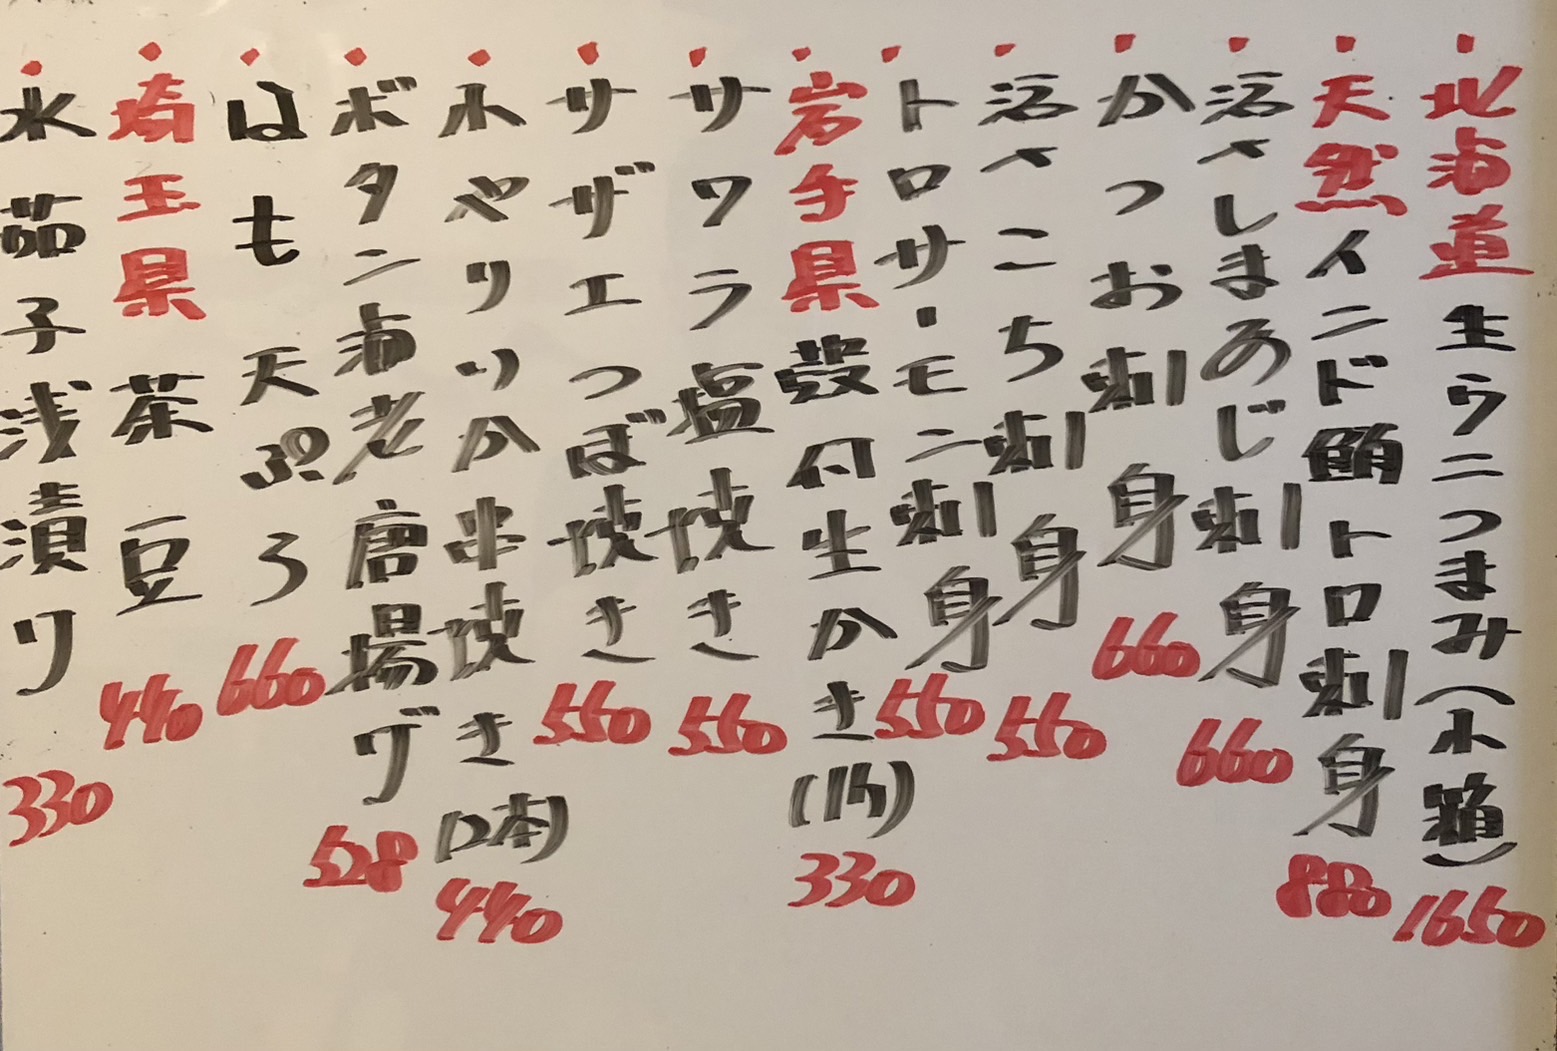 ・北海道生ウニつまみ(小箱)1650
・天然インド鮪トロ刺身880
・活〆しまあじ刺身660
・かつお刺身660
・活〆こち刺身550
・トロサーモン刺身550
・岩手県殻付生かき(1ヶ)330
・サワラ塩焼き550
・サザエつぼ焼き550
・小やりいか串焼き(2本)440
・ボタン海老唐揚げ528
・はも天ぷら660
・埼玉県茶豆440
・水茄子浅漬け330